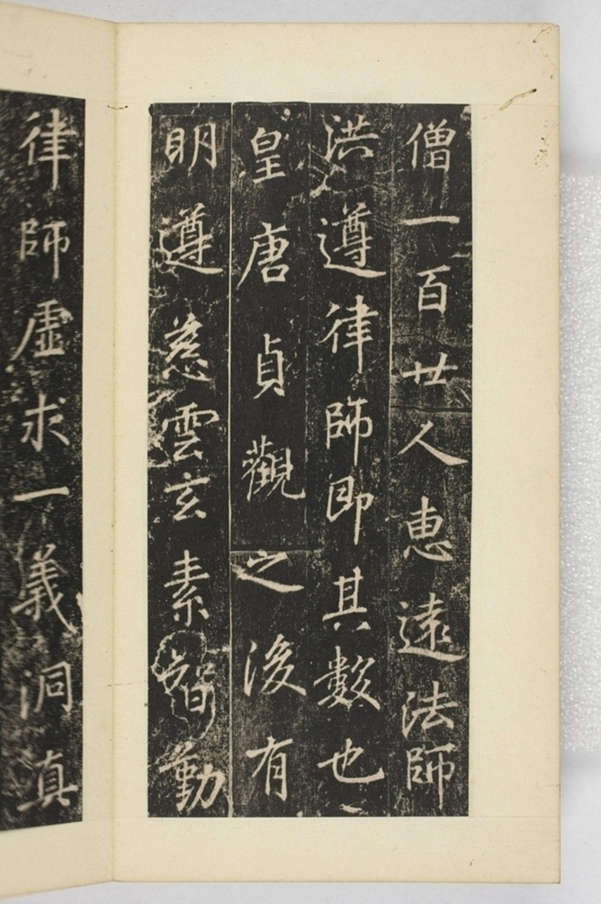 僧一百廿人惠遠法師
洪遵律師即其數也
皇唐貞觀之後有
明遵慈雲玄素智勤
律師虛求一義洞真